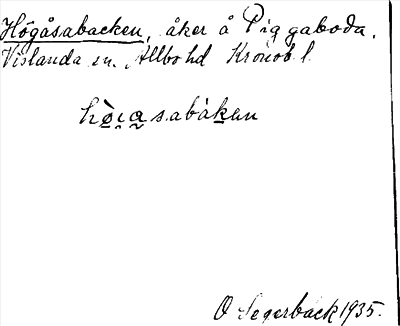 Högåsabacken, åker å Piggaboda,
Vislanda sn. Allbo hd Kronob l.
hö̀ıa̰sabákan
O Segerbäck 1935.